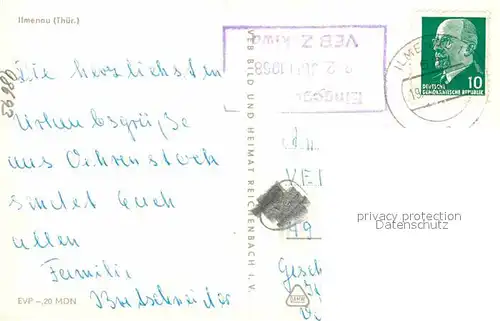 Ilmenau (Thür.)
Die herzlichsten
Urlaubsgrüße
aus Oehrenstock
sendet Euch
allen
Familie
Bretschneider
EVP -,20 MDN
VEB BILD UND HEIMAT REICHENBACH I. V.
VEB Z
1968
Eingeg
ILME
19
DEUTSCHE
DEMOKRATISCHE REPUBLIK
10
An
VE
49
privacy protection
Datenschutz
Gesch